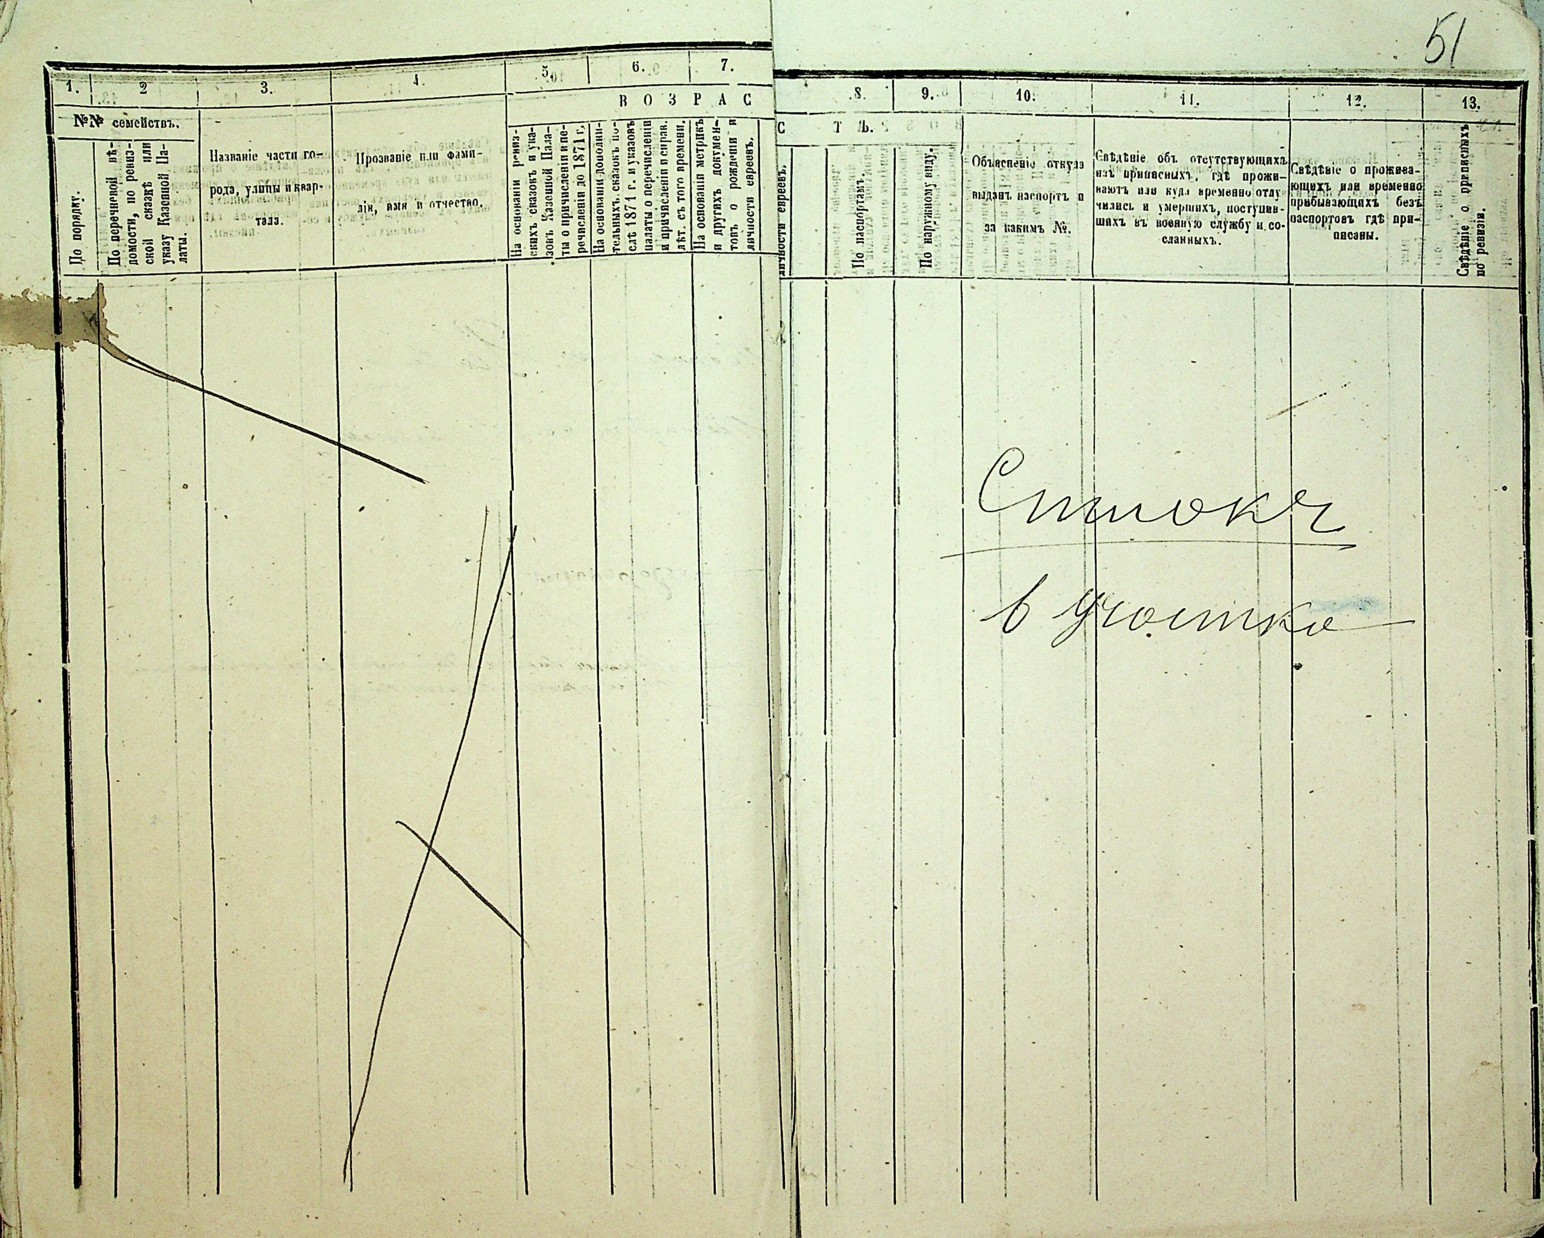 51
1. 2 3. 4. 5. 6. 7. 8. 9. 10. 11. 12. 13.
В О З Р А С Т Ъ.
№№ семействъ.
По порядку.
По перечневой вѣ-
домости, по ревиз-
ской сказкѣ или
указу Казенной Па-
латы.
Названіе части го-
рода, улицы и квар-
тала.
Прозваніе или фами-
лія, имя и отчество.
На основаніи ревиз-
скихъ сказокъ и ука-
зовъ Казенной Пала-
ты о причисленіи и пе-
речисленіи до 1871 г.
На основаніи дополни-
тельныхъ сказокъ по-
слѣ 1871 г. и указовъ
палаты о перечисленіи
и причисленіи и справ.
лѣт. съ того времени.
На основаніи метрикъ
и другихъ докумен-
товъ о рожденіи и
личности евреевъ.
личности евреевъ.
По паспортамъ.
По наружному виду.
Объясненіе откуда
выданъ паспортъ и
за какимъ №.
Свѣдѣніе объ отсутствующихъ
изъ приписныхъ, гдѣ прожи-
ваютъ или куда временно отлу-
чились и умершихъ, поступив-
шихъ въ военную службу и со-
сланныхъ.
Свѣдѣніе о прожива-
ющихъ или временно
прибывающихъ безъ
паспортовъ гдѣ при-
писаны.
Свѣдѣніе о приписныхъ
по ревизіи.
в участка